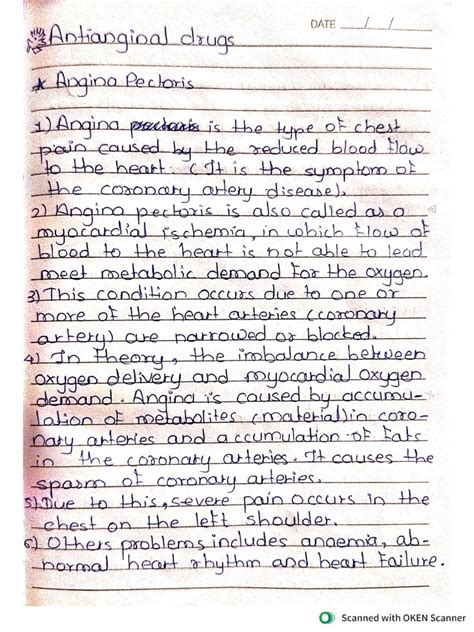 DATE __/__/__
Antianginal drugs
* Angina Pectoris
1) Angina is the type of chest
pain caused by the reduced blood flow
to the heart. (It is the symptom of
the coronary artery disease).
2) Angina pectoris is also called as a
myocardial ischemia, in which flow of
blood to the heart is not able to lead
meet metabolic demand for the oxygen.
3) This condition occurs due to one or
more of the heart arteries (coronary
artery) are narrowed or blocked.
4) In Theory, the imbalance between
oxygen delivery and myocardial oxygen
demand. Angina is caused by accumu-
lation of metabolites (material) in coro-
nary arteries and accumulation of fats
in the coronary arteries. It causes the
spasm of coronary arteries.
5) Due to this, severe pain occurs in the
chest on the left shoulder.
6) Others problems includes anaemia, ab-
normal heart rhythm and heart failure.
Scanned with OKEN Scanner